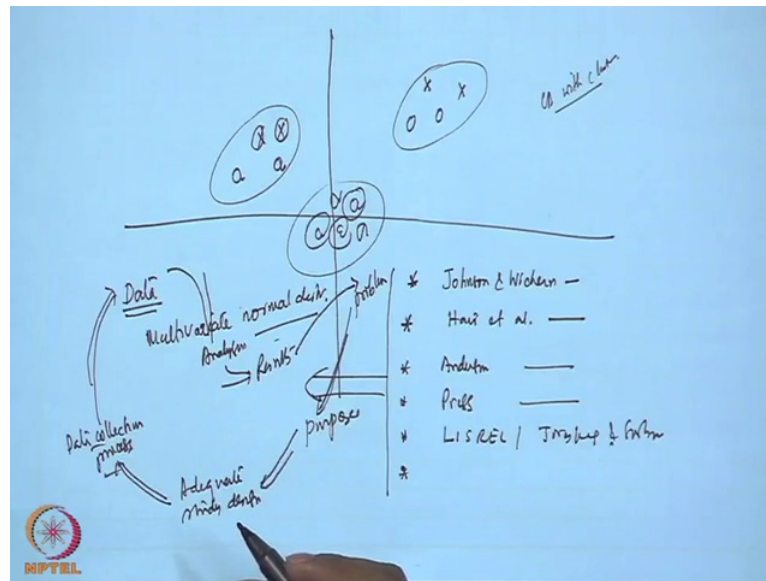 with
Data
Multivariate normal distr.
Analysis
Results
problem
purpose
Adequate
study design
Data collection
process
* Johnson & Wichern —
* Hair et al. —
* Anderson —
* Press —
* LISREL / &
*
NPTEL